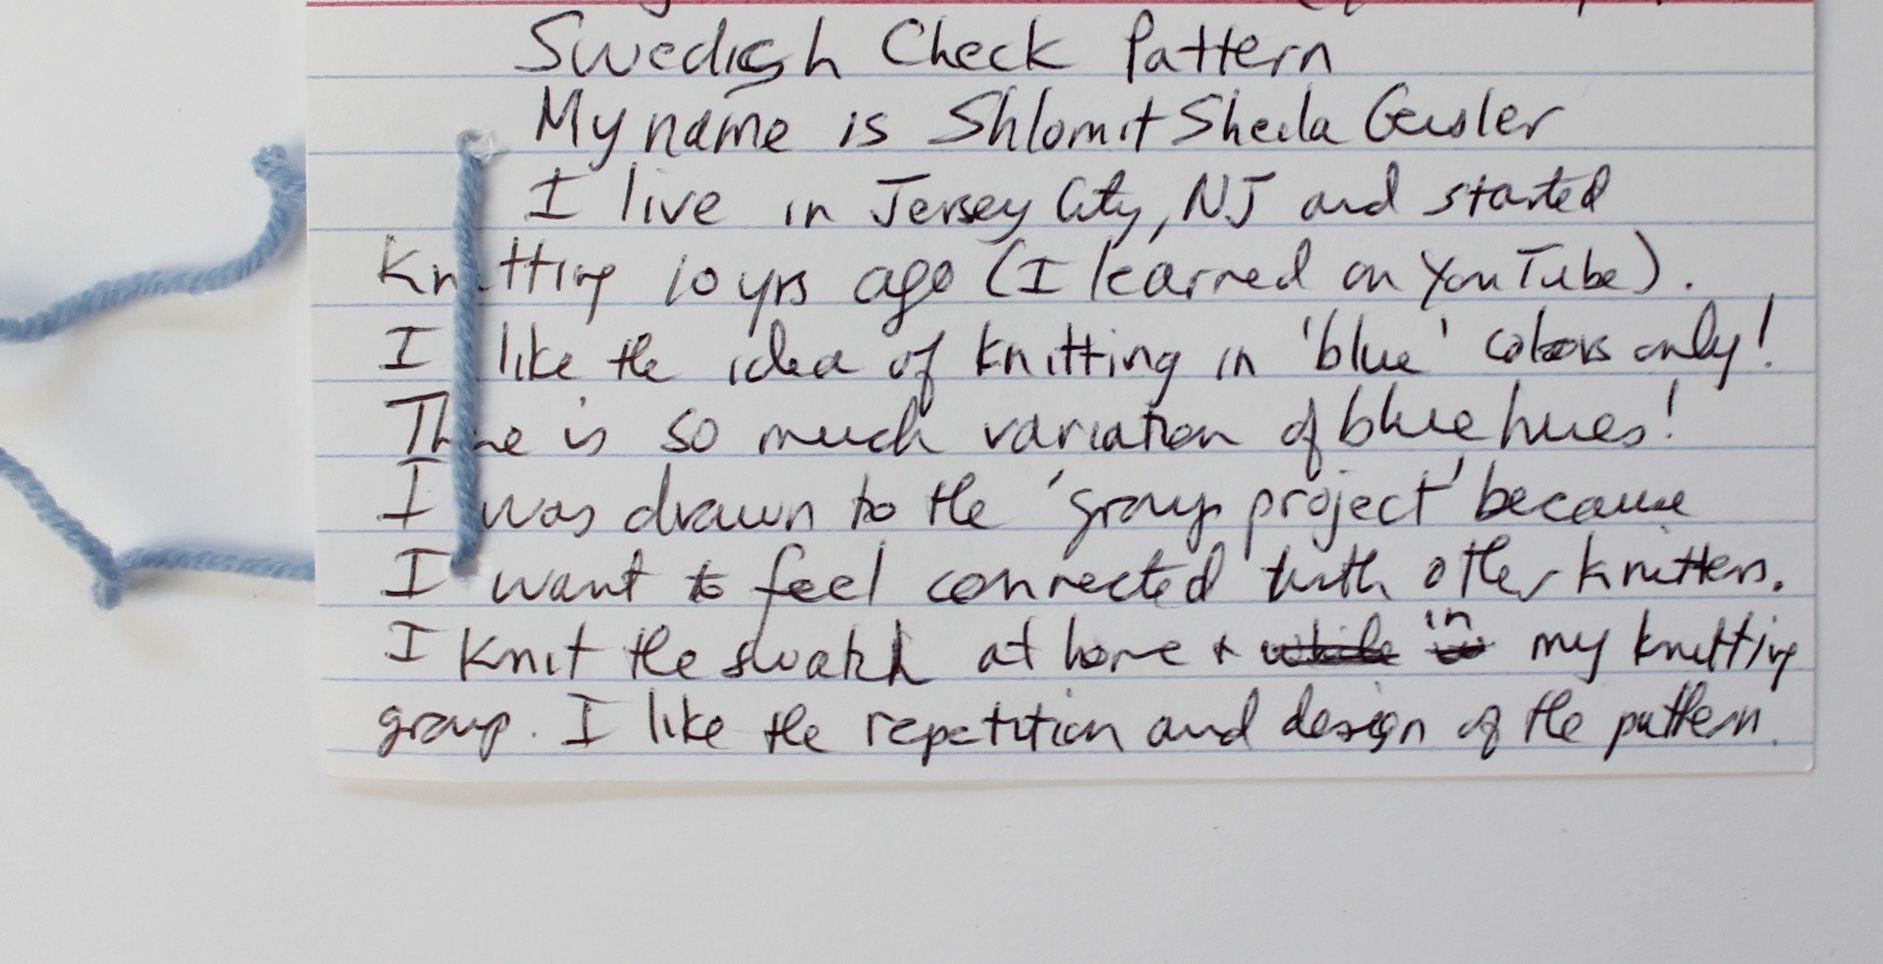 Swedish Check Pattern
My name is Shlomit Sheila Geisler
I live in Jersey City, NJ and started
Knitting 10 yrs ago (I learned on YouTube).
I like the idea of knitting in 'blue' colors only!
There is so much variation of blue hues!
I was drawn to the 'group project' because
I want to feel connected with other knitters.
I knit the swatch at home + while in my knitting
group. I like the repetition and design of the pattern.